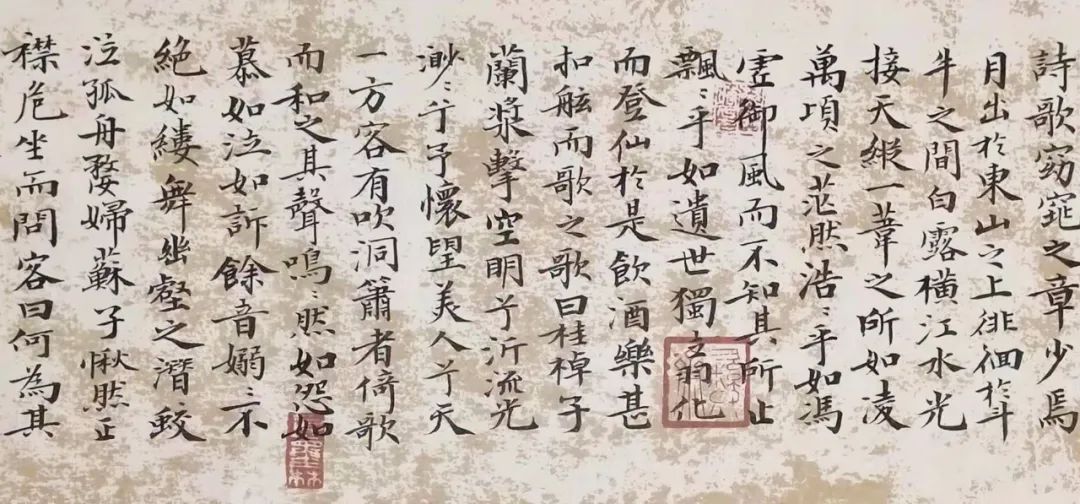 詩歌窈窕之章少焉
月出於東山之上徘徊於斗
牛之間白露橫江水光
接天縱一葦之所如凌
萬頃之茫然浩〻乎如馮
虛御風而不知其所止
飄〻乎如遺世獨立羽化
而登仙於是飲酒樂甚
扣舷而歌之歌曰桂棹子
蘭槳擊空明兮泝流光
渺〻兮予懷望美人兮天
一方客有吹洞簫者倚歌
而和之其聲嗚〻然如怨如
慕如泣如訴餘音嫋〻不
絕如縷舞幽壑之潛蛟
泣孤舟嫠婦蘇子愀然正
襟危坐而問客曰何為其